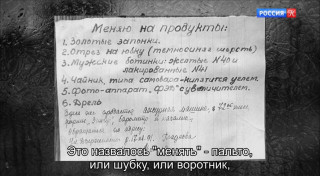 РОССИЯ К
Меняю на продукты:
1. Золотые запонки.
2. Отрез на юбку (темносиняя шерсть)
3. Мужские ботинки: желтые №40 и
лакированные №41
4. Чайник, типа самовара-кипятится углем.
5. Фото-аппарат, "ФЭД" с увеличителем.
6. Дрель
Это назвалось "менять" - пальто,
или шубку, или воротник,